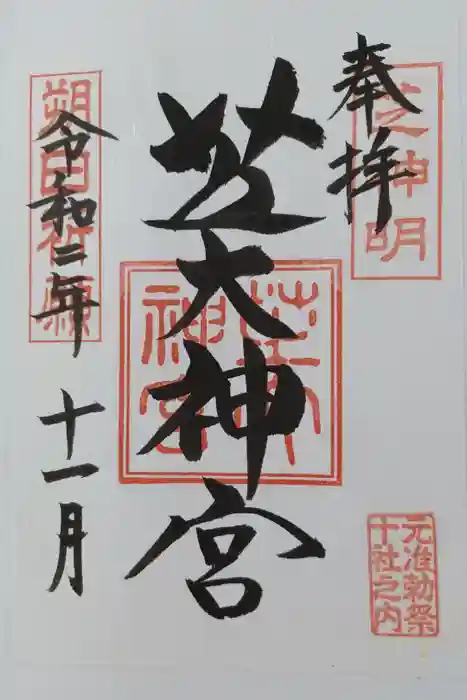 奉拝
芝神明
元准勅祭
十社之内
芝大神宮
芝大
神宮
朔日祈願
令和二年
十一月